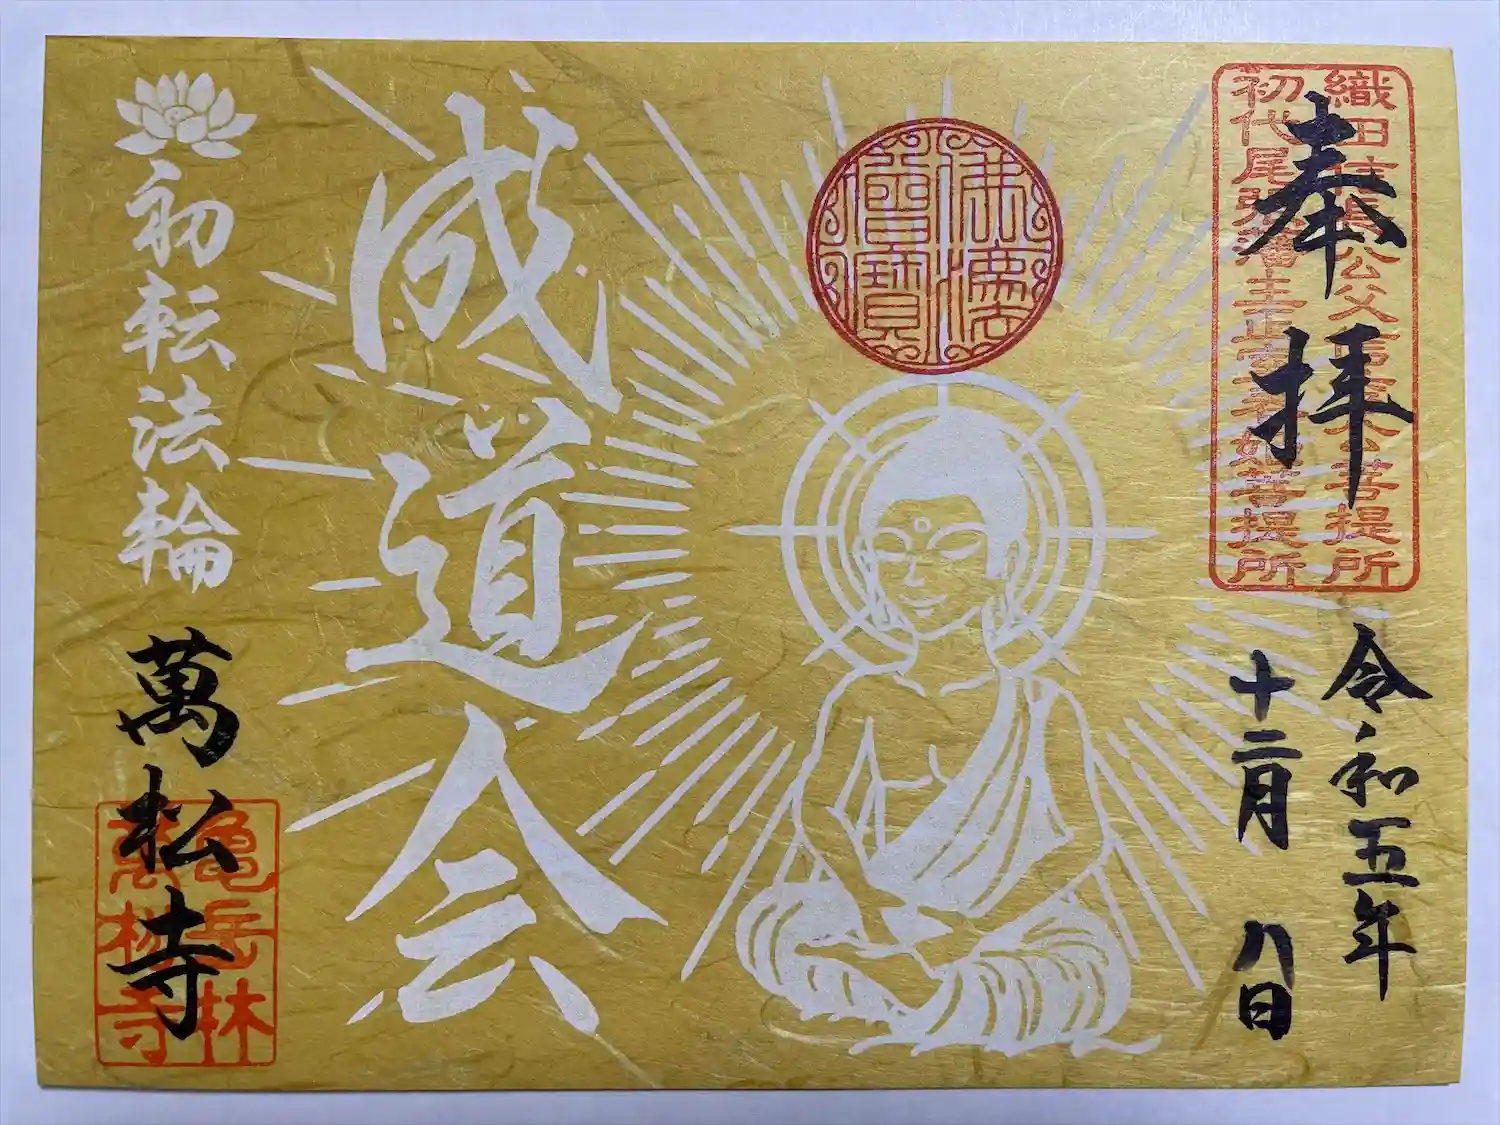 奉拝
織田信長公父信秀公菩提所
初代尾張藩主正室春姫菩提所
令和五年
十二月八日
佛法僧寳
成道会
初転法輪
萬松寺
亀岳林
萬松寺